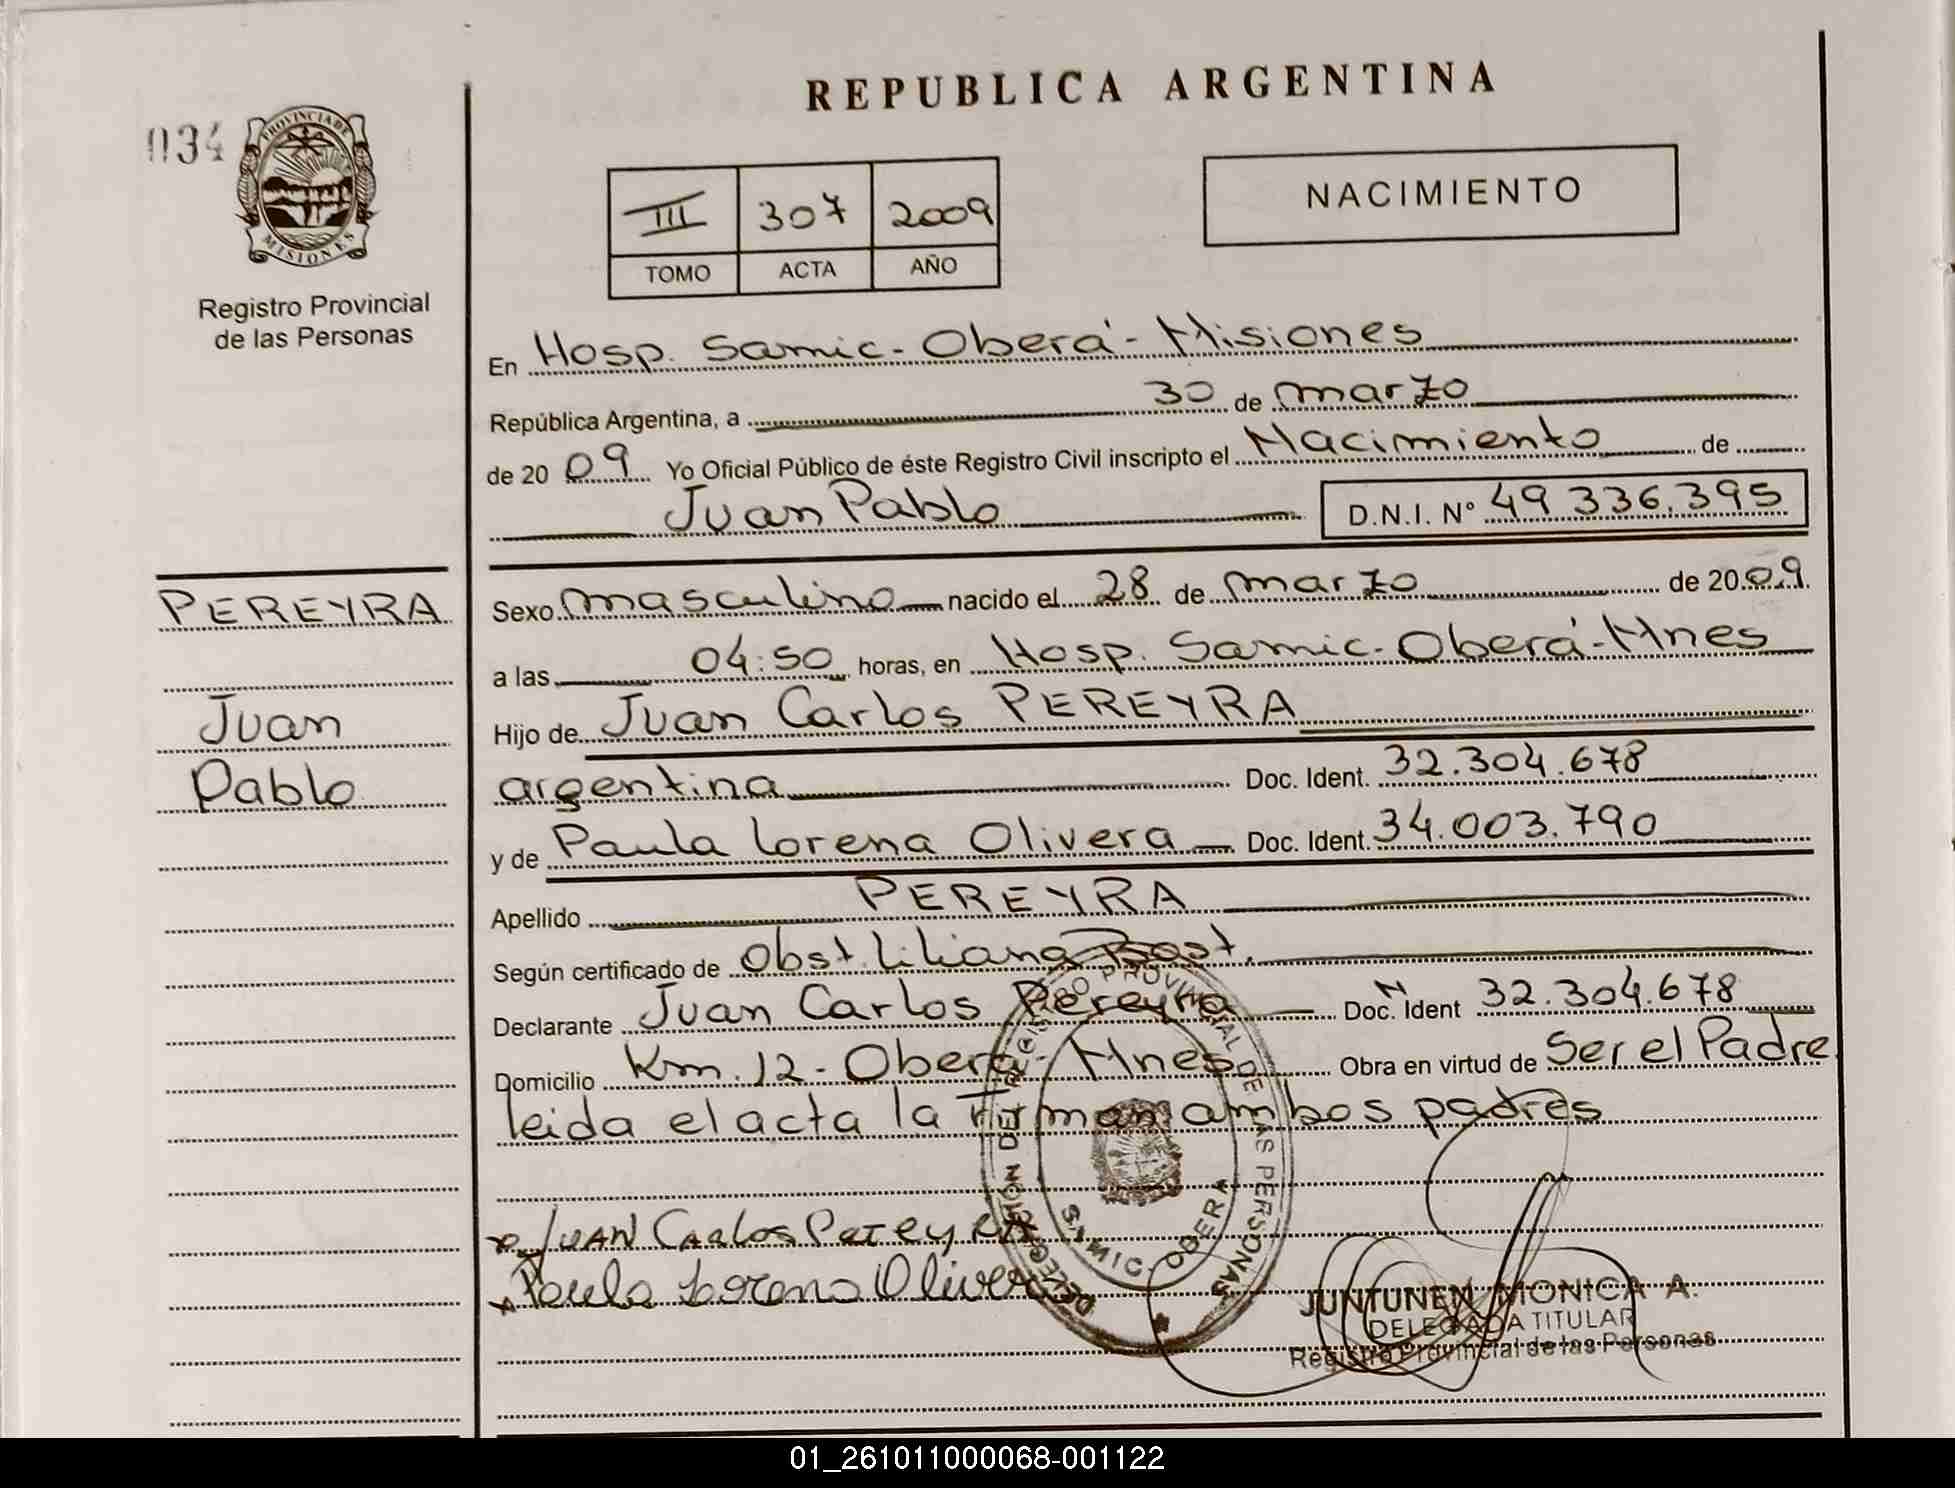 REPUBLICA ARGENTINA
034
PROVINCIA DE
MISIONES
Registro Provincial
de las Personas
III 307 2009
TOMO ACTA AÑO
NACIMIENTO
En Hosp. Samic - Oberá - Misiones
República Argentina, a 30 de marzo
de 2009 Yo Oficial Público de éste Registro Civil inscripto el Nacimiento de
Juan Pablo D.N.I. N° 49.336.395
PEREYRA
Juan
Pablo
Sexo masculino nacido el 28 de marzo de 2009
a las 04:50 horas, en Hosp. Samic - Oberá - Mnes
Hijo de Juan Carlos PEREYRA
argentina Doc. Ident. 32.304.678
y de Paula Lorena Olivera Doc. Ident. 34.003.790
Apellido PEREYRA
Según certificado de Obst. Liliana
Declarante Juan Carlos Pereyra Doc. N Ident 32.304.678
Domicilio Km. 12 - Oberá - Mnes Obra en virtud de Ser el Padre
leida el acta la firman ambos padres
JUAN CARLOS PEREYRA
Paula Lorena Olivera
REGISTRO PROVINCIAL DE LAS PERSONAS
SAMIC OBERA
JUNTUNEN MONICA A.
DELEGADA TITULAR
Registro Provincial de las Personas
01_261011000068-001122